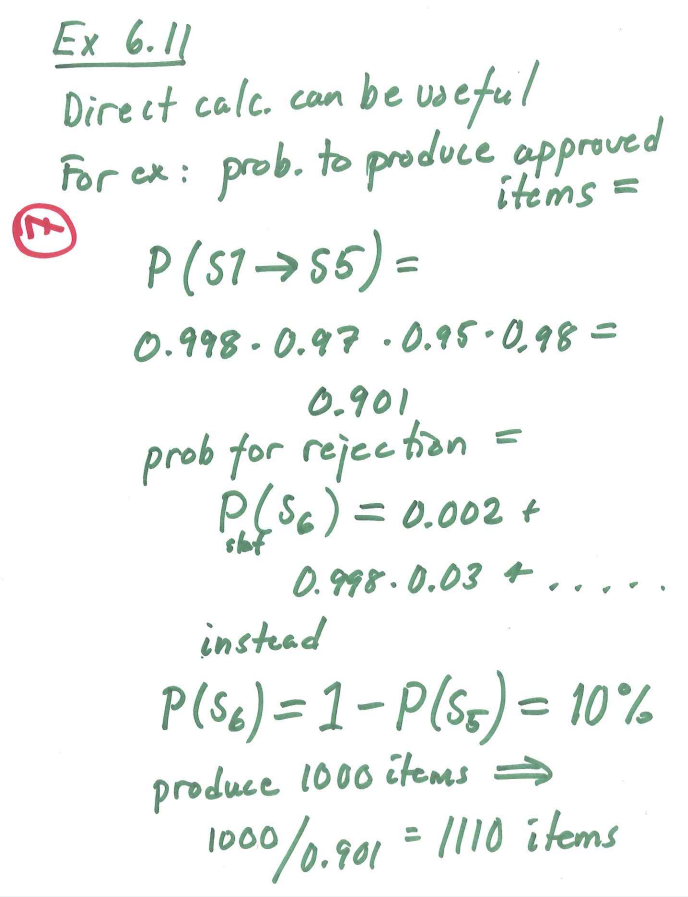 Ex 6.11
Direct calc. can be useful
For ex: prob. to produce approved
items =
7
P(S1→S5) =
0.998 · 0.97 · 0.95 · 0.98 =
0.901
prob for rejection =
P(S6) = 0.002 +
0.998 · 0.03 + .....
instead
P(S6) = 1 - P(S5) = 10%
produce 1000 items ⇒
1000/0.901 = 1110 items